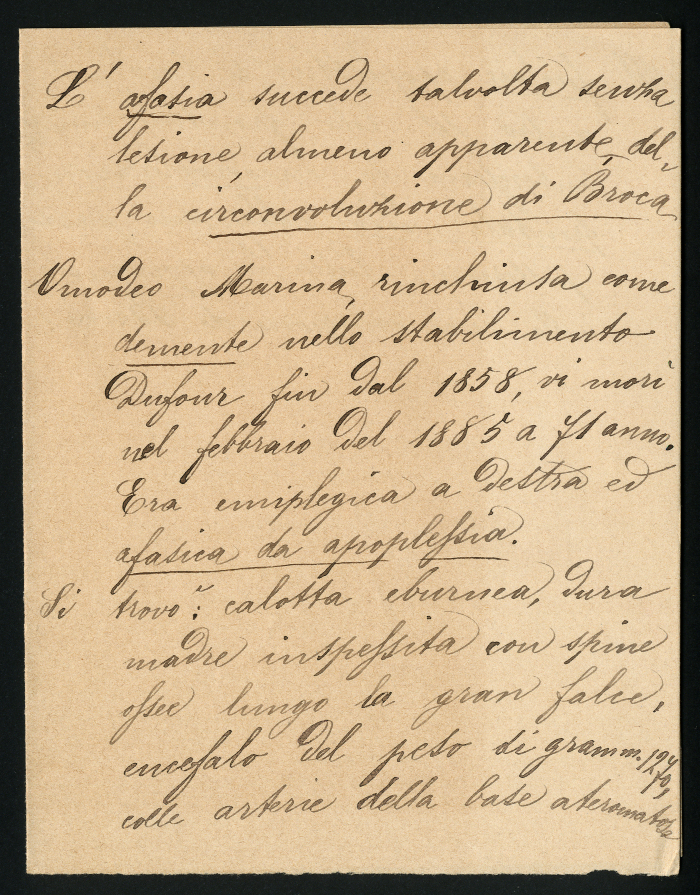 L' afasia succede talvolta senza
lesione, almeno apparente, del-
la circonvoluzione di Broca
Omodeo Marina, rinchiusa come
demente nello stabilimento
Dufour fin dal 1858, vi morì
nel febbraio del 1885 a 71 anno.
Era emiplegica a destra ed
afasica da apoplessia.
Si trovò: calotta eburnea, dura
madre inspessita con spine
ossee lungo la gran falce,
encefalo del peso di gramm.
colle arterie della base ateromatose